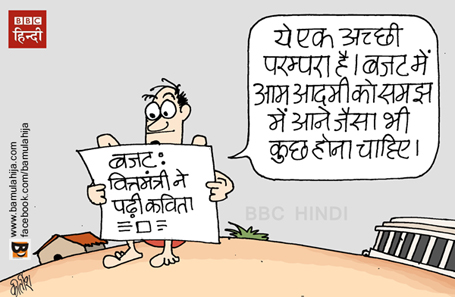 BBC
हिन्दी
ये एक अच्छी
परम्परा है। बजट में
आम आदमी को समझ
में आने जैसा भी
कुछ होना चाहिए।
बजट:
वित्तमंत्री ने
पढ़ी कविता
BBC HINDI
www.bamulahija.com
facebook.com/bamulahija
कीर्तीश